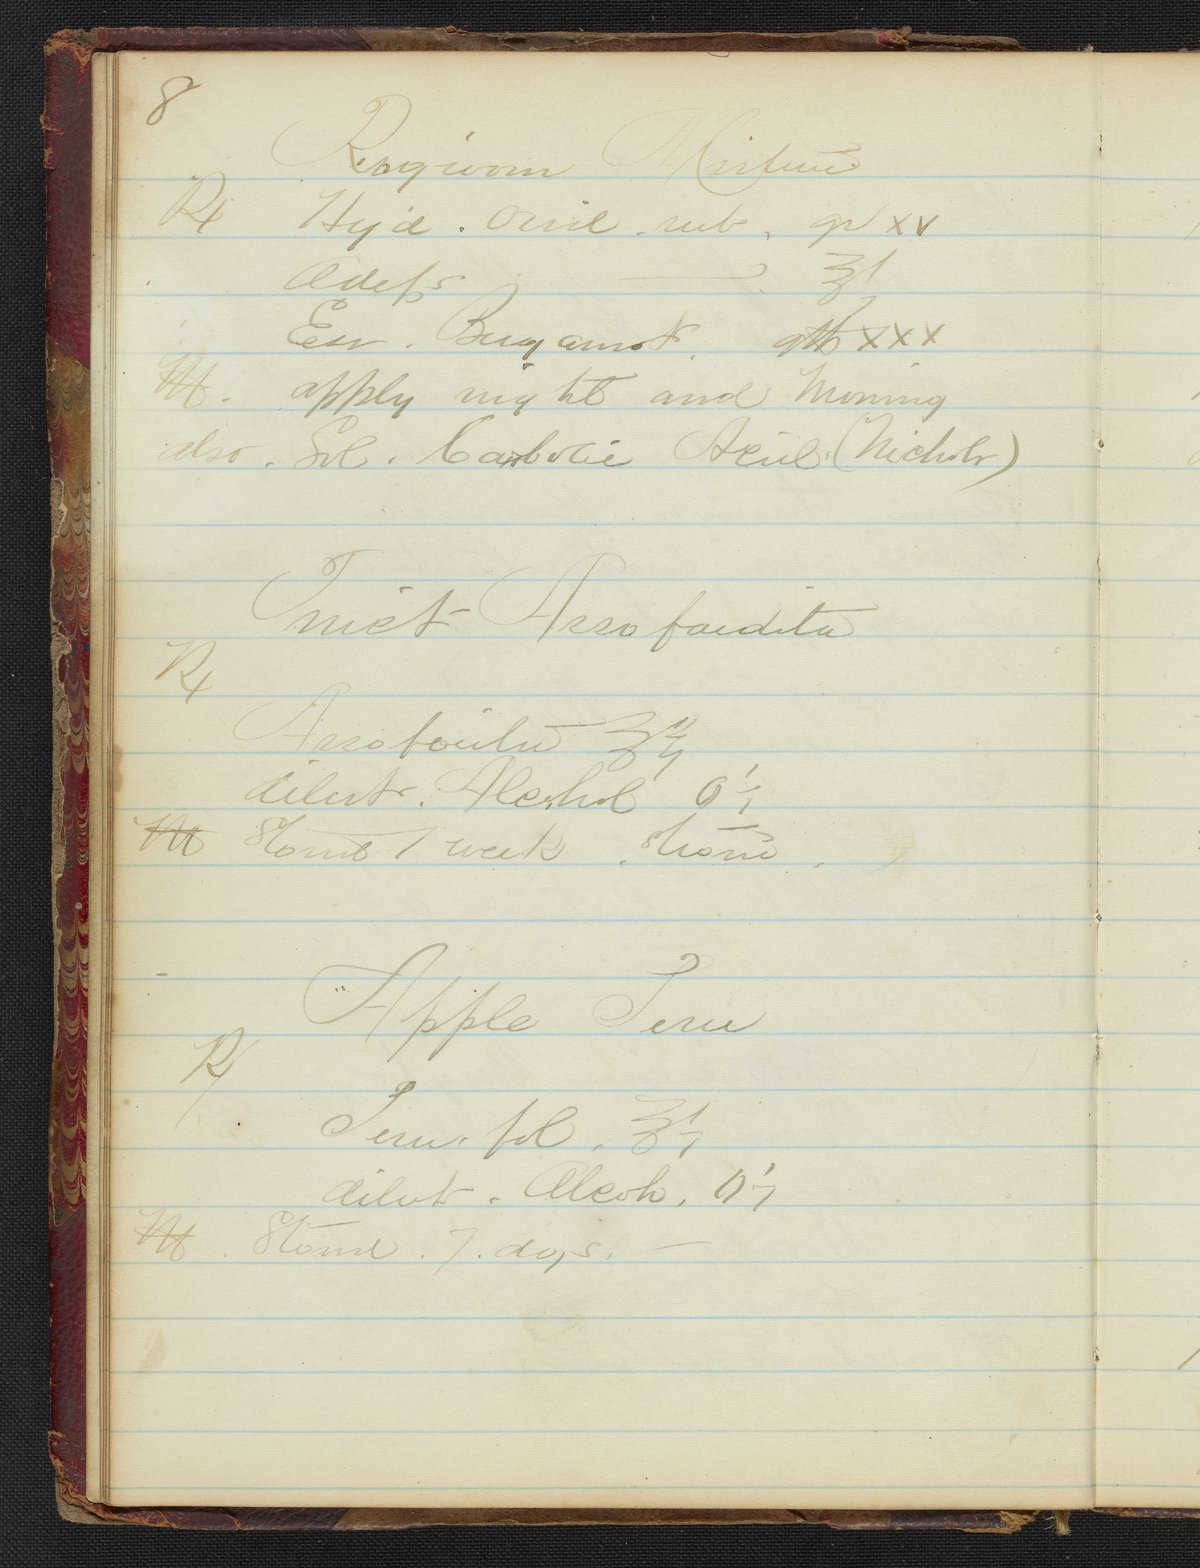 8
Ringworm Mixture
Rx Hyd. Oxid. rub. gr XV
Adeps ℥1
Ess. Bergamot. gtt XXX
M. apply night and Morning
also. Sol. Carbolic Acid (Nichols)
Tinct Assafoedita
Rx
Assafoeita ℥ij
dilut. Alcohol O'j
M Stand 1 week. strain.
Apple Peru
Rx
Peru. fol. ℥j
dilut. Alcoh. O'j
M. Stand. 7. days.